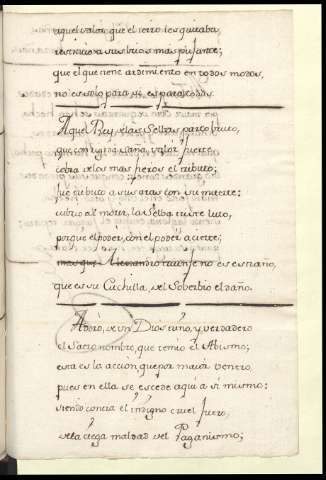 aquel valor, que el cerro les quitaba,
a sus brios mas pujante;
que el que tiene ardimiento en todos modos,
no es solo para si, es para todos.
Aquel Rey de las Selbas parto bruto,
que con rigor, saña, valor fuerte
cobra de los mas fieros el tributo;
fue tributo a sus aras con su muerte:
al morir, la Selba triste luto,
porque el poder, con el poder acierte;
mas que Alexandro triunfe no es estraño,
que es su Cuchilla, del Soberbio el daño.
Adoró, de un Dios trino, y verdadero
el Sacro nombre, que temió el Abismo;
esta es la acción, que por maior venero
pues en ella se escede aqui a si mismo:
siendo contra el indigno cruel fuero,
de la ciega maldad del Paganismo;